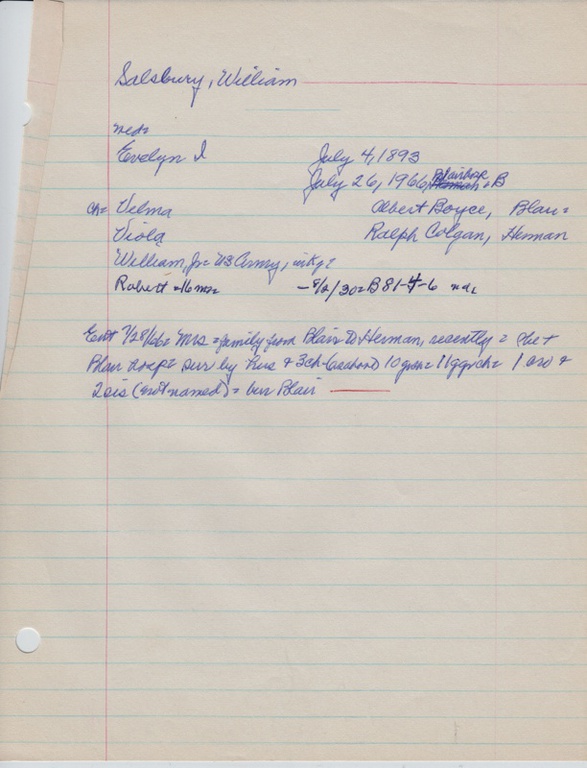 Salsbury, William
md=
Evelyn I July 4, 1893
July 26, 1966, Blair hosp = B
ch= Velma Albert Boyce, Blair=
Viola Ralph Colgan, Herman
William, Jr= US Army,
Robert =16 mo= - 8/2/30=B 81-4-6
Ent 7/28/66= Mrs =family from Blair to Herman, recently =
Blair hosp= sur by hus + 3ch 10 = 1 bro +
2sis (not named)= bur Blair